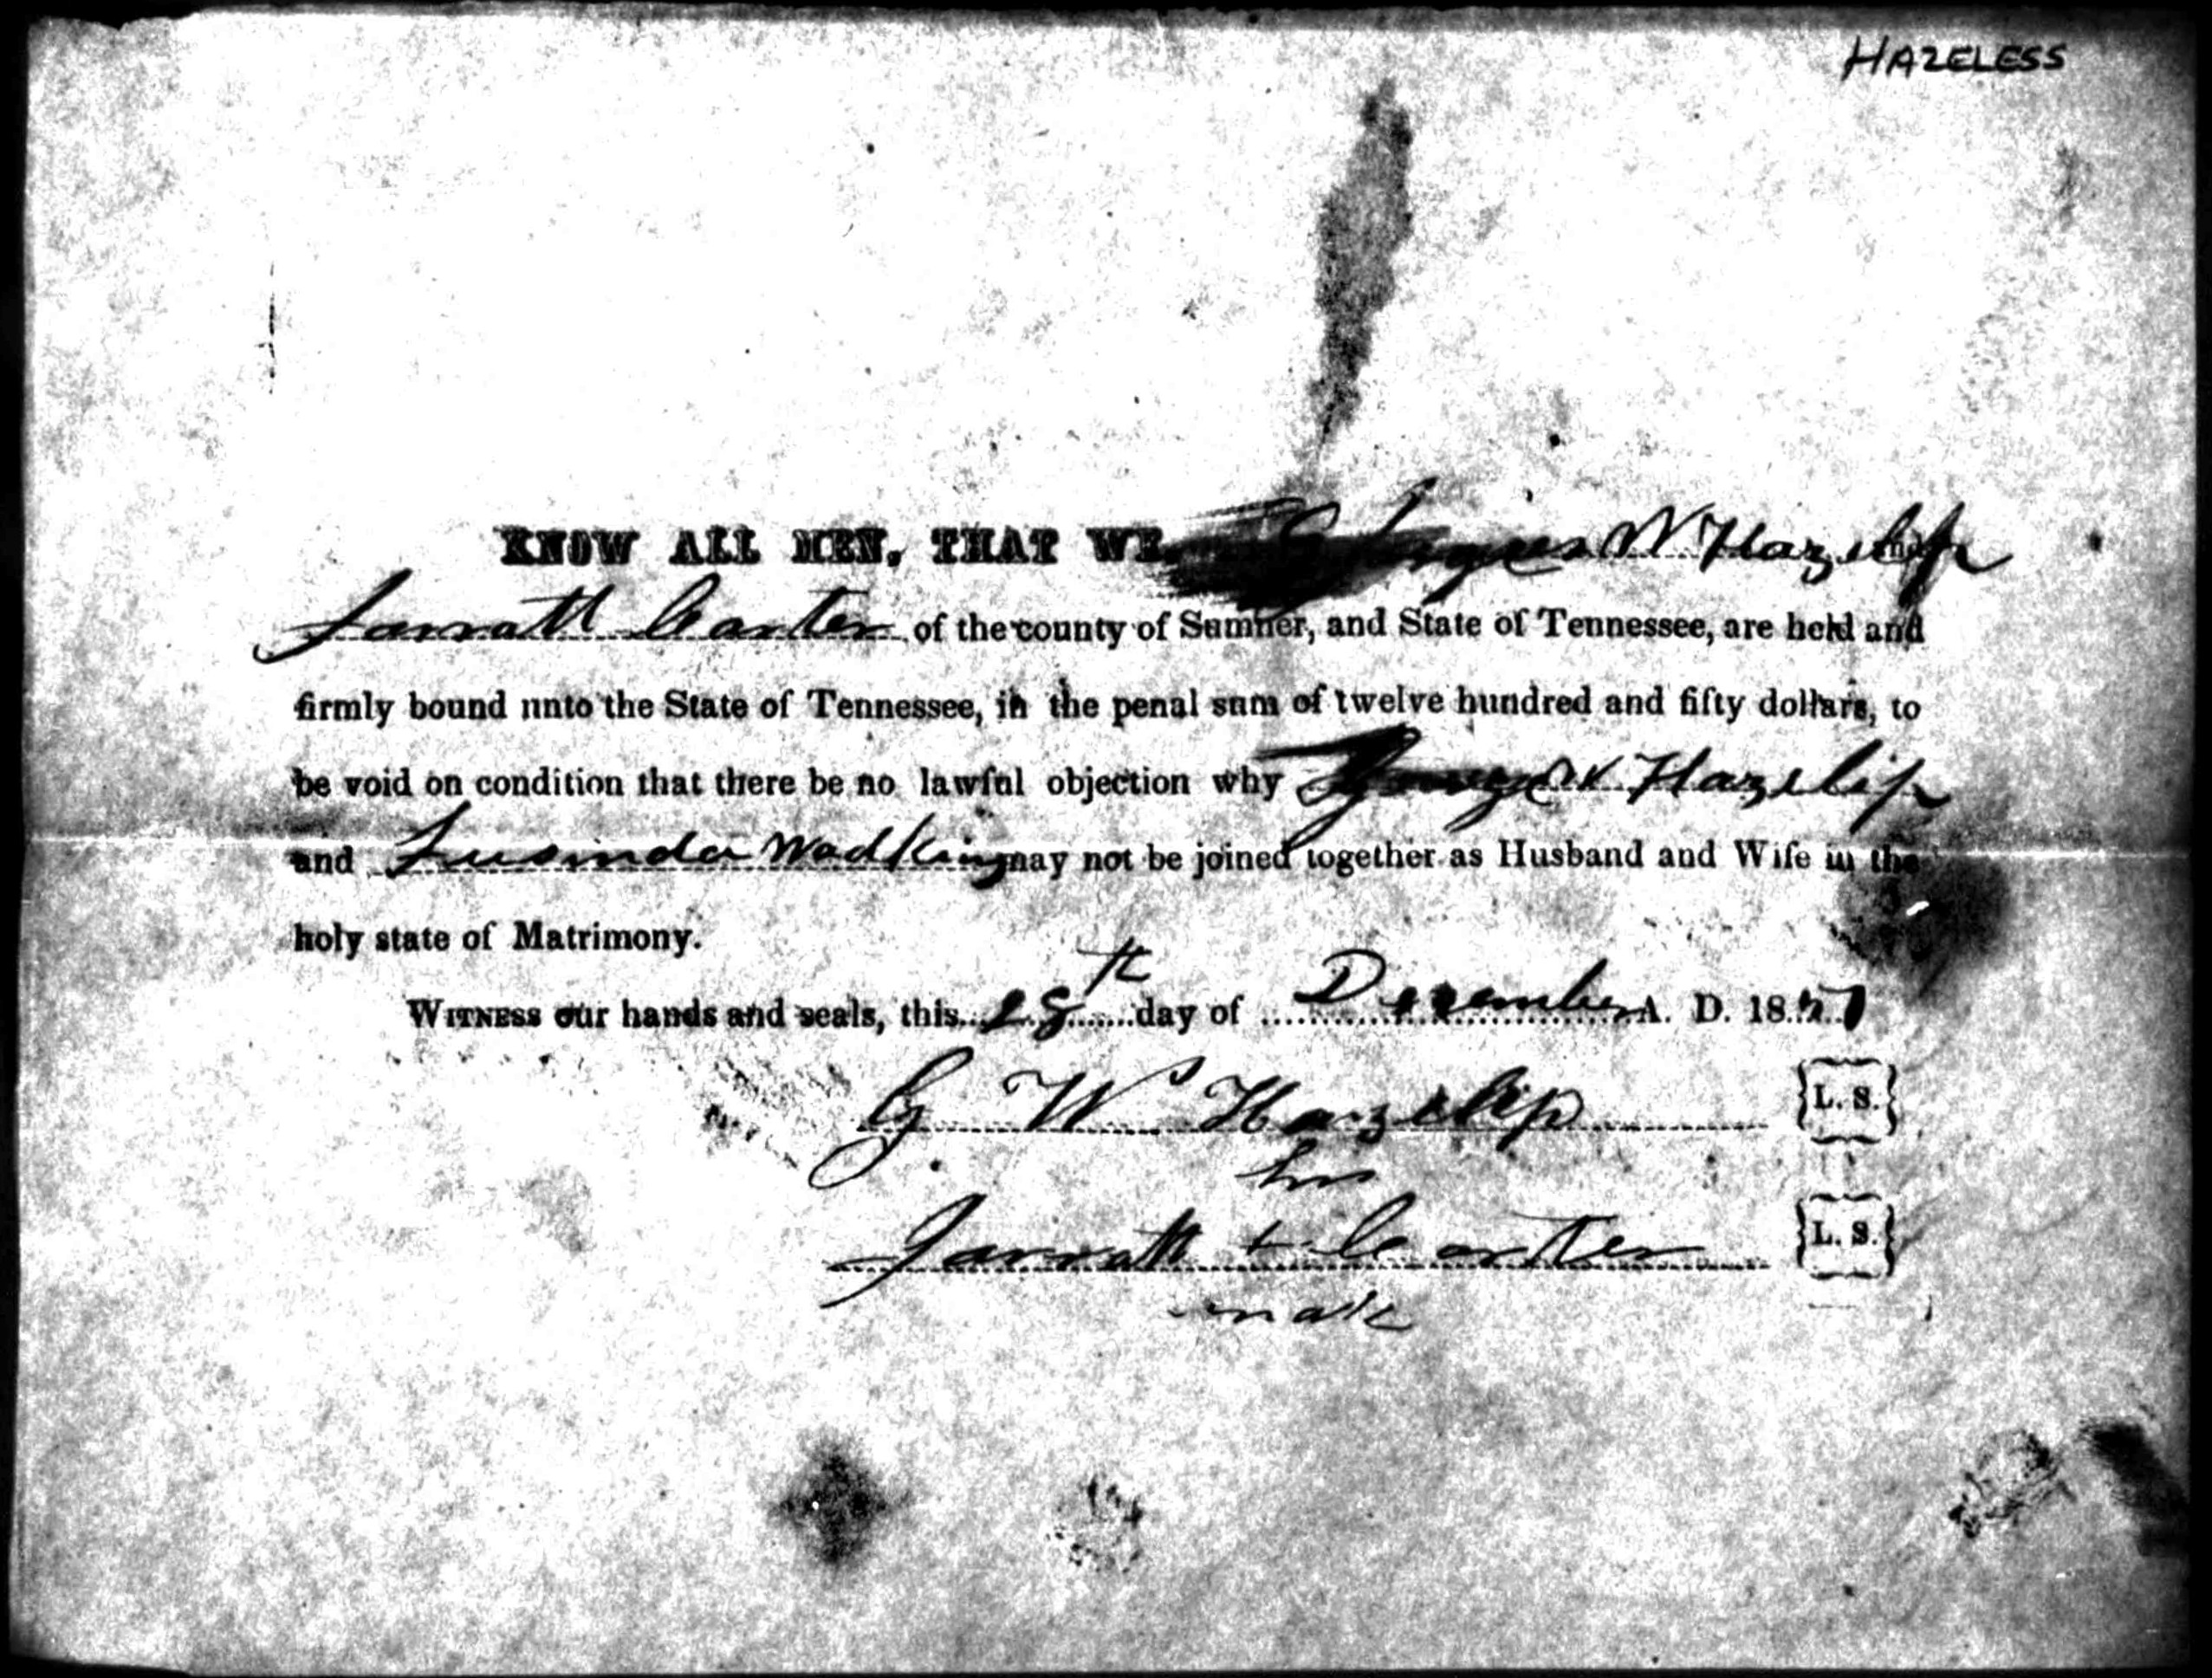 HAZELESS
KNOW ALL MEN, THAT WE, W Hazelip
Jarratt Carter of the county of Sumner, and State of Tennessee, are held and
firmly bound unto the State of Tennessee, in the penal sum of twelve hundred and fifty dollars, to
be void on condition that there be no lawful objection why George W Hazelip
and Lusinda Wadkins may not be joined together as Husband and Wife in the
holy state of Matrimony.
WITNESS our hands and seals, this 28th day of December A. D. 18
G W Hazelip L. S.
his
Jarratt + Carter L. S.
mark